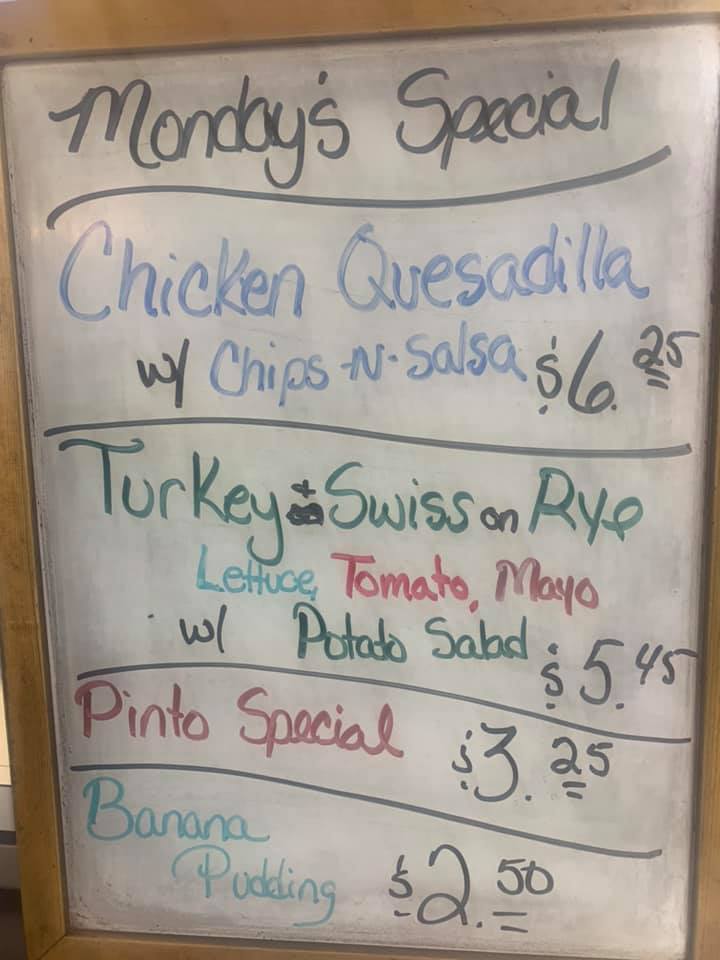 Monday's Special
Chicken Quesadilla
w/ Chips -N- Salsa $6.25
Turkey + Swiss on Rye
Lettuce, Tomato, Mayo
w/ Potato Salad $5.45
Pinto Special $3.25
Banana
Pudding $2.50